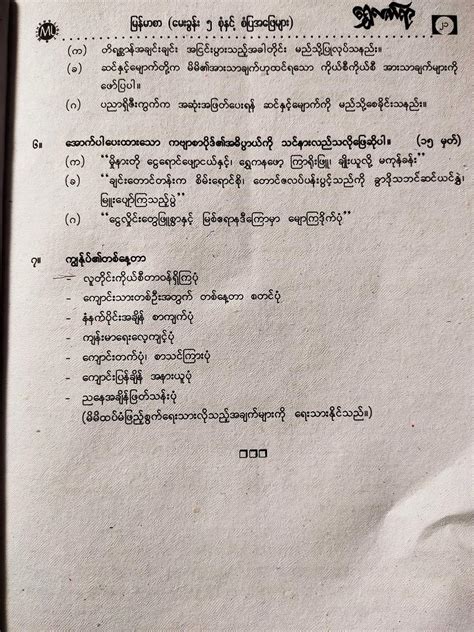 ML မြန်မာစာ (မေးခွန်း ၅ စုံနှင့် စံပြအဖြေများ) ၂၁
(က) တိရစ္ဆာန်အချင်းချင်း အငြင်းပွားသည့်အခါတိုင်း မည်သို့ပြုလုပ်သနည်း။
(ခ) ဆင်နှင့်မျောက်တို့က မိမိ၏အားသာချက်ဟုထင်ရသော ကိုယ်စီကိုယ်စီ အားသာချက်များကို
ဖော်ပြပါ။
(ဂ) ပညာရှိဇီးကွက်က အဆုံးအဖြတ်ပေးရန် ဆင်နှင့်မျောက်ကို မည်သို့စေခိုင်းသနည်း။
၆။ အောက်ပါပေးထားသော ကဗျာစာပိုဒ်၏အဓိပ္ပာယ်ကို သင်နားလည်သလိုဖြေဆိုပါ။ (၁၅ မှတ်)
(က) "မှိုနားတို့ ငွေရောင်ဖျော့ငယ်နှင့်၊ ရွှေကနဖော့ ကြာရိုးဖြူ၊ ချိုးယူလို့ မကုန်ခန်း"
(ခ) "ချင်းတောင်တန်းက စိမ်းရောင်စို၊ တောင်ဇလပ်ပန်းပွင့်သည်ကို ခွာဒိုသဘင်ဆင်ယင်နွှဲ၊
မြူးပျော်ကြသည့်ပွဲ"
(ဂ) "ငွေလှိုင်းတွေဖြူစွာနှင့် မြစ်ဧရာနဒီကြောမှာ မျောကြဒိုက်ပုံ"
၇။ ကျွန်ုပ်၏တစ်နေ့တာ
- လူတိုင်းကိုယ်စီတာဝန်ရှိကြပုံ
- ကျောင်းသားတစ်ဦးအတွက် တစ်နေ့တာ စတင်ပုံ
- နံနက်ပိုင်းအချိန် စာကျက်ပုံ
- ကျန်းမာရေးလေ့ကျင့်ပုံ
- ကျောင်းတက်ပုံ၊ စာသင်ကြားပုံ
- ကျောင်းပြန်ချိန် အနားယူပုံ
- ညနေအချိန်ဖြတ်သန်းပုံ
(မိမိထပ်မံဖြည့်စွက်ရေးသားလိုသည့်အချက်များကို ရေးသားနိုင်သည်။)